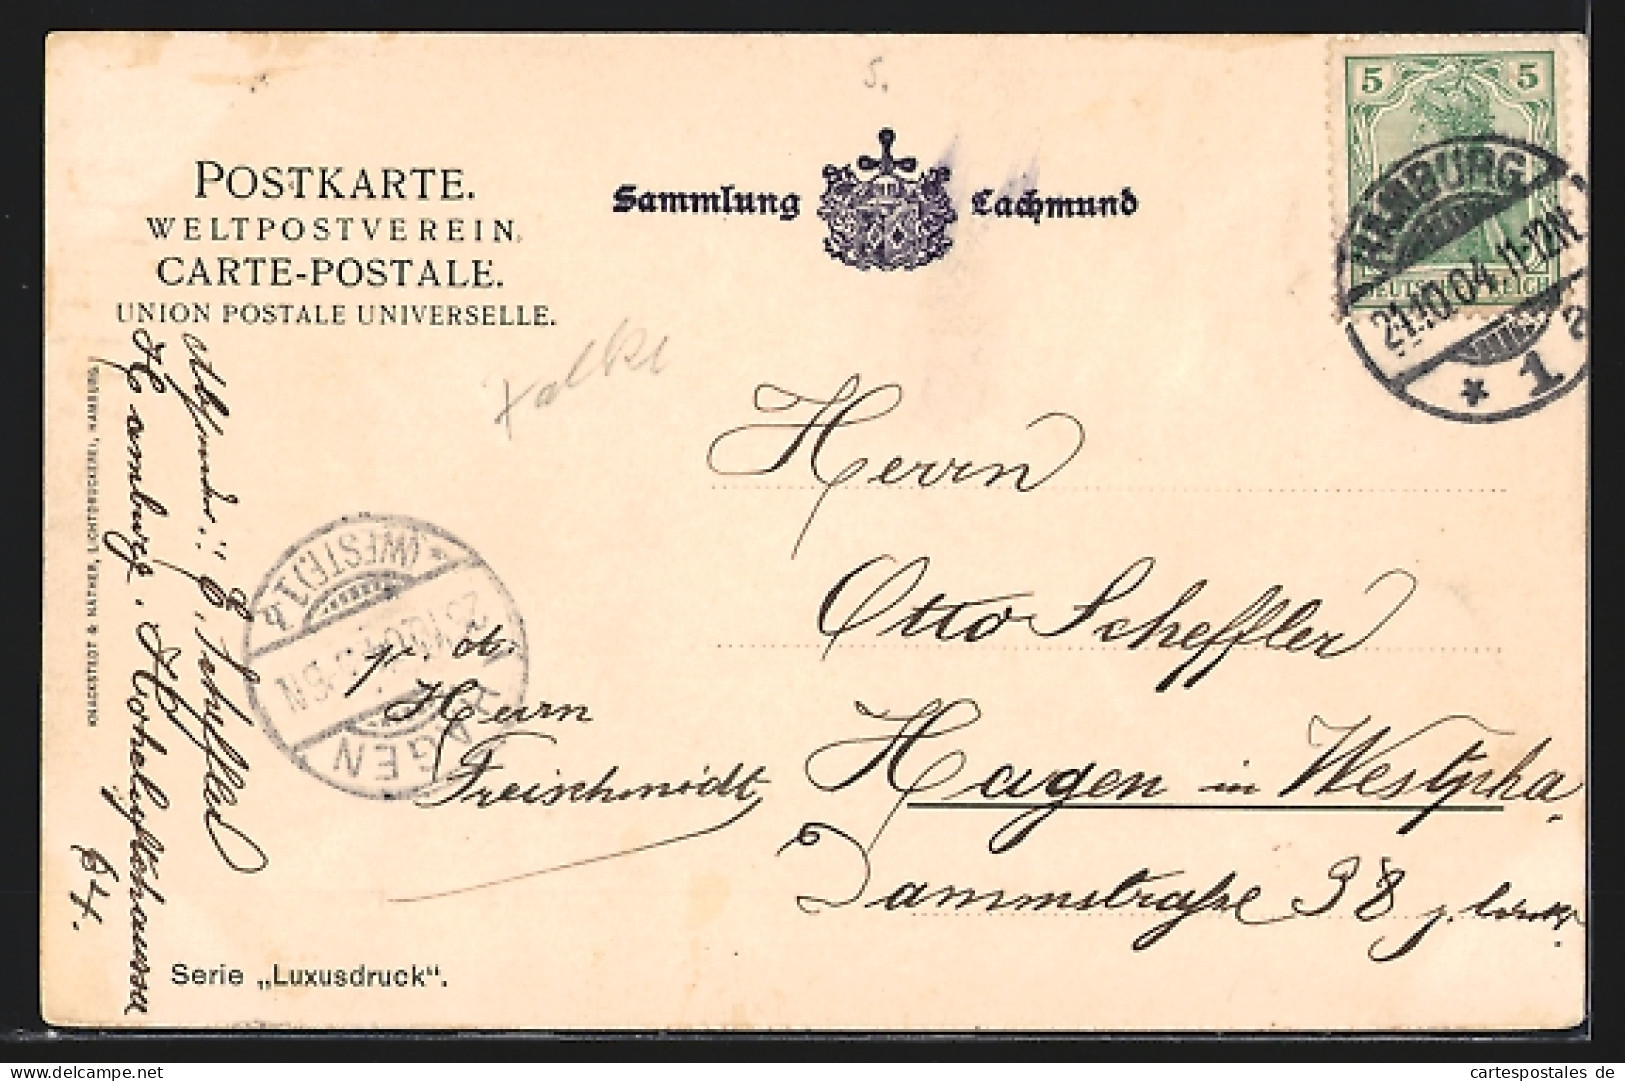 5.
POSTKARTE.
WELTPOSTVEREIN.
CARTE-POSTALE.
UNION POSTALE UNIVERSELLE.
Sammlung Lachmund
5 5
DEUTSCHES REICH
HAMBURG
21.10.04.11-12N
* 1 a
Herrn
Otto Scheffler
Hagen in Westpha
Dammstraße 38
p. ad.
Herrn
Freischmidt
HAGEN
* (WESTF.) 1
KNACKSTEDT & NÄTHER, LICHTDRUCKEREI, HAMBURG
Absender: E. Scheffler
Hamburg.
64.
Serie „Luxusdruck“.
cartespostales de